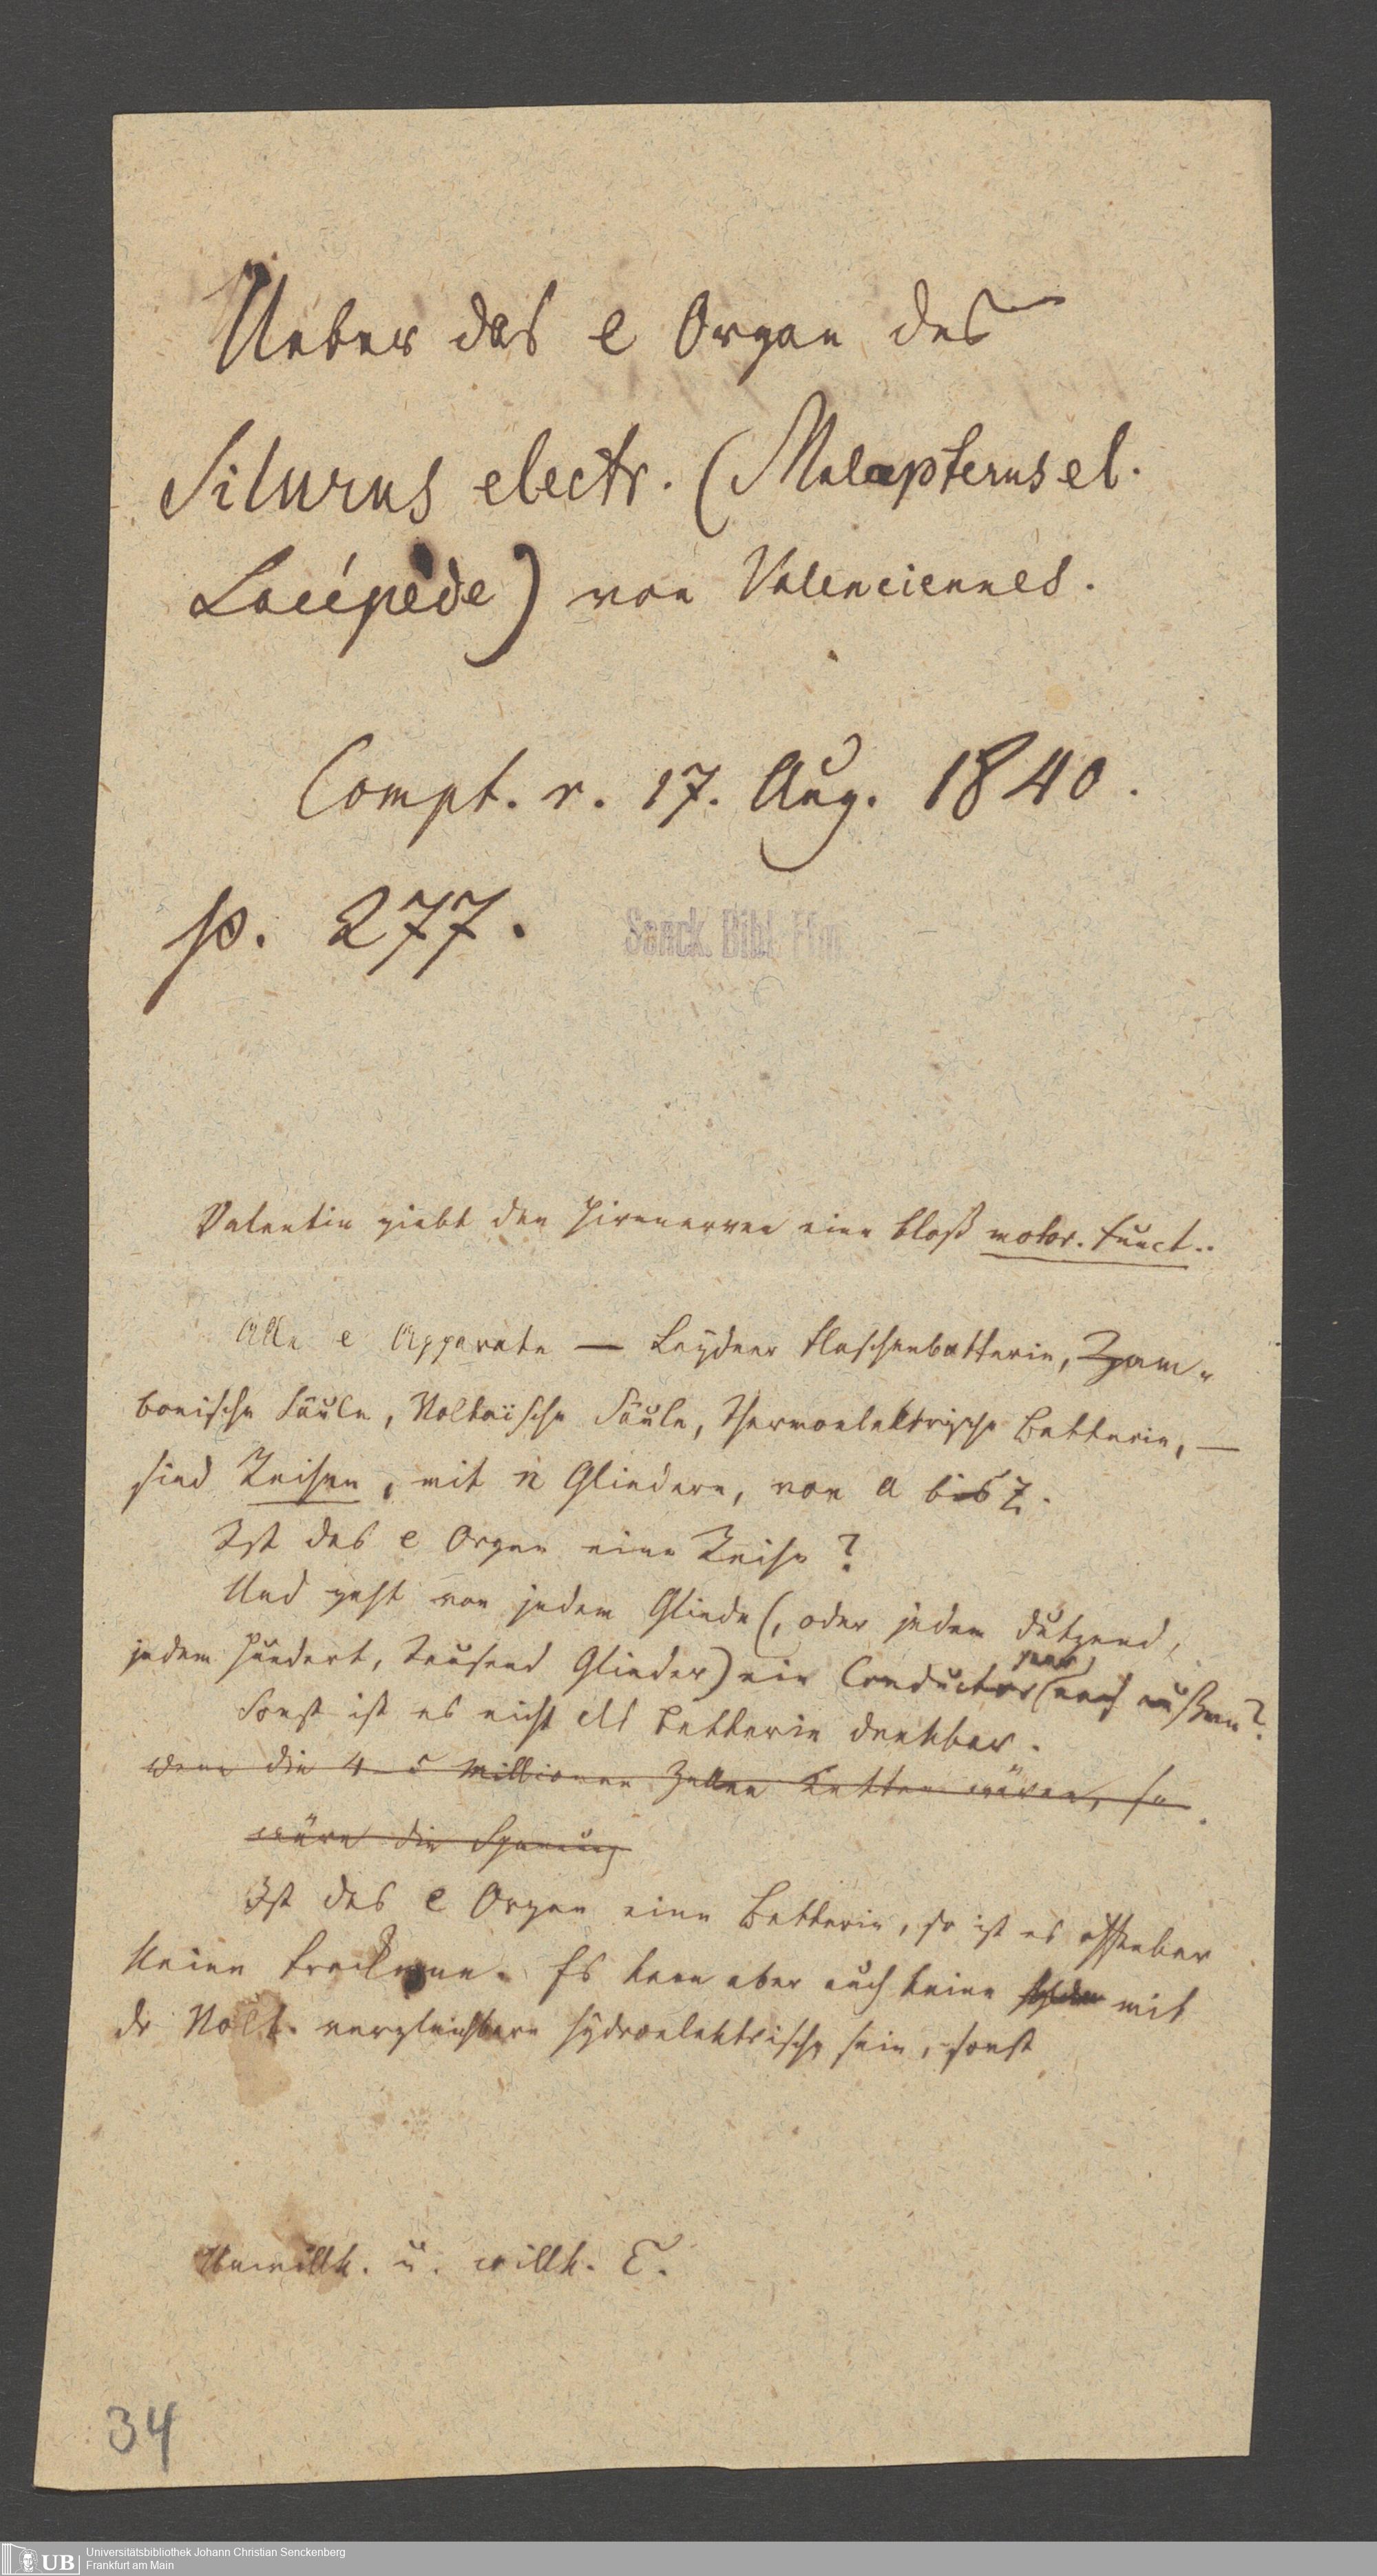 Ueber das e Organ des
Silurus electr. (Malapterus el.
Lacépède) von Valenciennes.
Compt. r. 17. Aug. 1840.
p. 277.
Senck. Bibl. Ffm.
Valentin giebt den Hirnnerven eine bloß motor. Funct..
Alle e Apparate — Leydner Flaschenbatterie, Zam-
bonische Säule, Voltaische Säule, Thermoelektrische Batterie, —
sind Reihen, mit n Gliedern, von a bis z.
Ist das e Organ eine Reihe?
Und geht von jedem Gliede (, oder jedem dutzend,
jedem Hundert, Tausend Glieder) ein Conductor (nach außen?
Sonst ist es nicht als Batterie denkbar.
Wenn die 4-5 Millionen Zellen Ketten wären, so
wäre die Spanung
Ist das e Organ eine Batterie, so ist es offenbar
keine trockene. Es kann aber auch keine mit
dr Volt. vergleichbare hydroelektrische sein, sonst
Unwillk. u. willk. E.
34
UB
Universitätsbibliothek Johann Christian Senckenberg
Frankfurt am Main